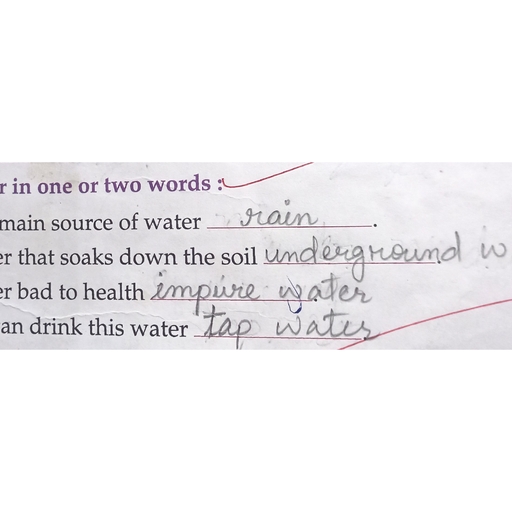 r in one or two words :
main source of water rain .
er that soaks down the soil underground w
er bad to health impure water
an drink this water tap water